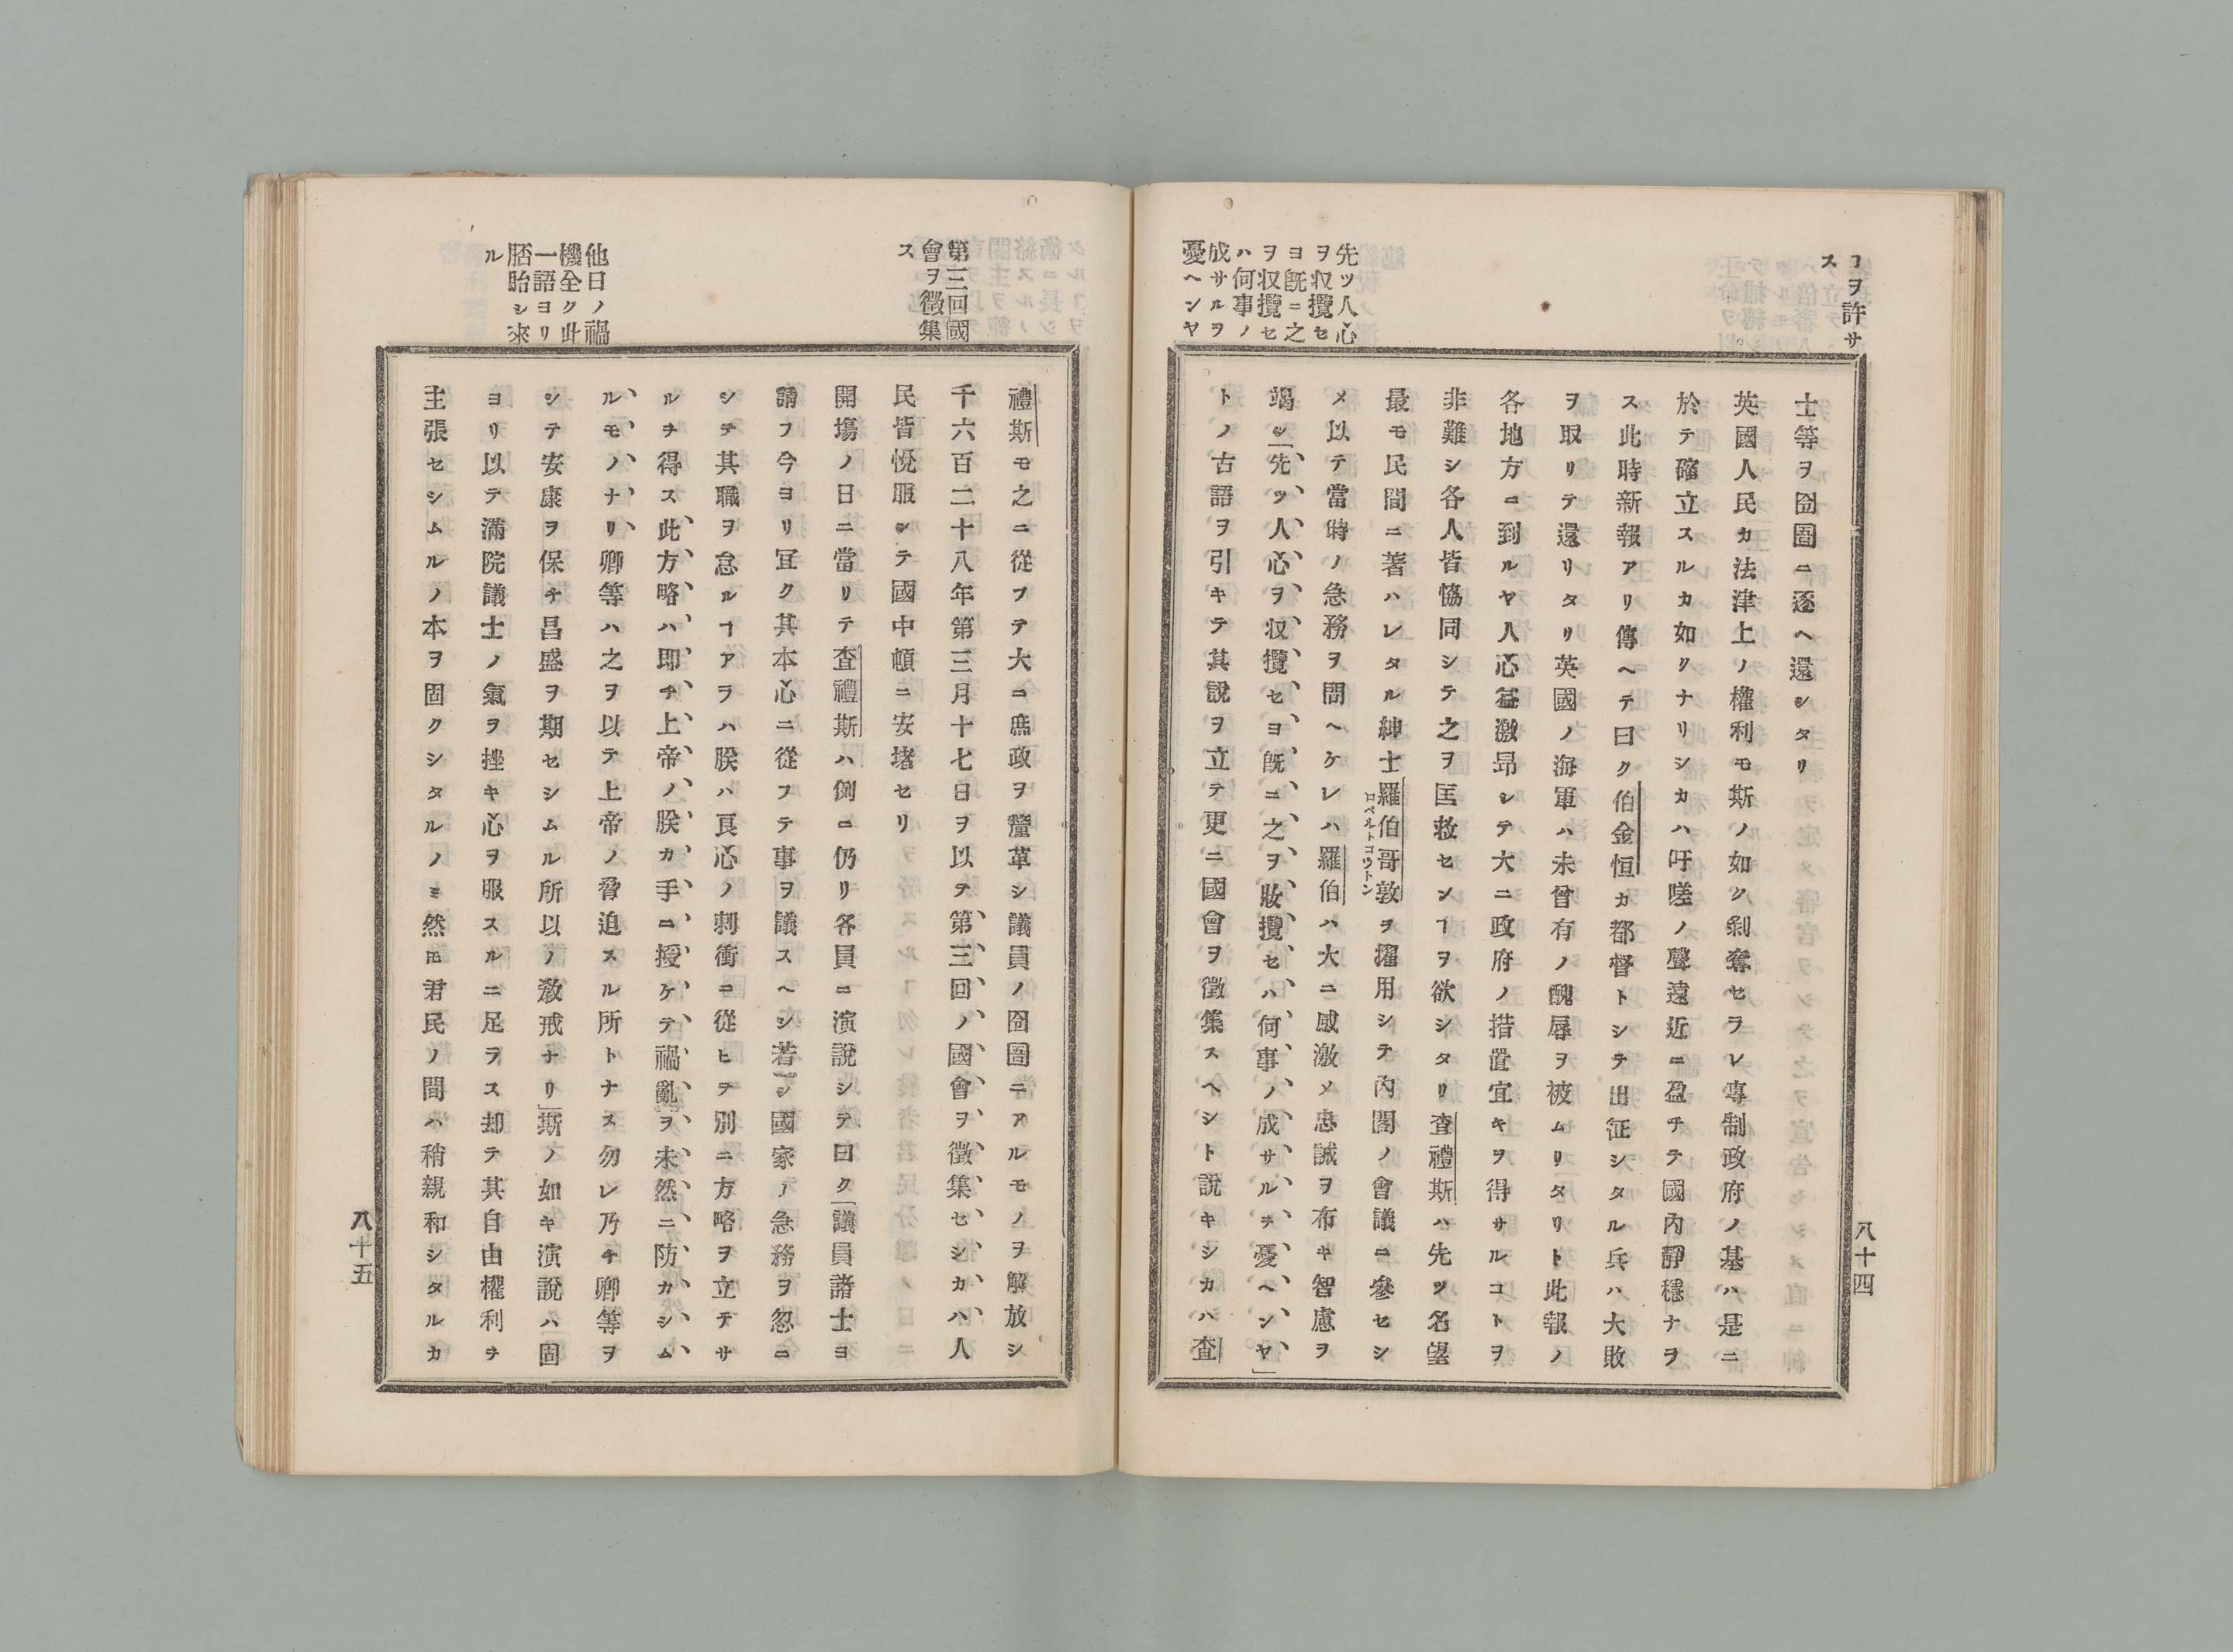 コヲ許サ
ス
先ツ人心
ヲ収攬セ
ヨ既ニ之
ヲ収攬セ
ハ何事ノ
成サルヲ
憂ヘンヤ
士等ヲ囹圄ニ逐ヘ還シタリ
英國人民カ法津上ノ權利モ斯ノ如ク剥奪セラレ專制政府ノ基ハ是ニ
於テ確立スルカ如リナリシカハ吁嗟ノ聲遠近ニ盈チテ國內靜穩ナヲ
ス此時新報アリ傳ヘテ曰ク伯金恒カ都督トシテ出征シタル兵ハ大敗
ヲ取リテ還リタリ英國ノ海軍ハ未曾有ノ醜辱ヲ被ムリタリト此報ノ
各地方ニ到ルヤ人心益激昂シテ大ニ政府ノ措置宜キヲ得サルコトヲ
非難シ各人皆恊同シテ之ヲ匡救センヿヲ欲シタリ査禮斯ハ先ツ名望
最モ民間ニ著ハレタル紳士羅伯哥敦ヲ擢用シテ內閣ノ會議ニ參セシ
ロベルトコツトン
メ以テ當時ノ急務ヲ問ヘケレハ羅伯ハ大ニ感激メ忠誠ヲ布キ智慮ヲ
竭シ「先ツ人心ヲ収攬セヨ既ニ之ヲ收攬セハ何事ノ成サルヲ憂ヘンヤ」
トノ古語ヲ引キテ其說ヲ立テ更ニ國會ヲ徵集スヘシト說キシカハ査
八十四
第三回國
會ヲ徵集
ス
他日ノ禍
機全ク此
一語ヨリ
胚胎シ來
ル
禮斯モ之ニ從フテ大ニ庶政ヲ釐革シ議員ノ囹圄ニアルモノヲ解放シ
千六百二十八年第三月十七日ヲ以テ第三回ノ國會ヲ徵集セシカハ人
民皆悅服シテ國中頓ニ安堵セリ
開塲ノ日ニ當リテ査禮斯ハ側ニ仍リ各員ニ演說シテ曰ク「議員諸士ヨ
請フ今ヨリ冝ク其本心ニ從フテ事ヲ議スヘシ若シ國家ノ急務ヲ忽ニ
シテ其職ヲ怠ルヿアラハ朕ハ良心ノ刺衝ニ從ヒテ別ニ方略ヲ立テサ
ルヲ得ス此方略ハ即チ上帝ノ朕カ手ニ授ケテ禍亂ヲ未然ニ防カシム
ルモノナリ卿等ハ之ヲ以テ上帝ノ脅迫スル所トナス勿レ乃チ卿等ヲ
シテ安康ヲ保チ昌盛ヲ期セシムル所以ノ敎戒ナリ」斯ノ如キ演說ハ固
ヨリ以テ滿院議士ノ氣ヲ挫キ心ヲ服スルニ足ヲス却テ其自由權利ヲ
主張セシムルノ本ヲ固クシタルノミ然𪜈君民ノ間ハ稍親和シタルカ
八十五